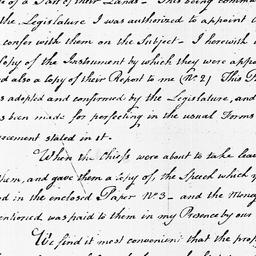 of a Part of their Lands - This being comm
the Legislature I was authorized to appoint
confer with them on the Subject - I herewith
Copy of the Instrument by which they were appo
nd also a Copy of their Report to me (No 2) This
as adopted and confirmed by the Legislature, and
s been made for perfecting in the usual Forms
reement stated in it.
When the Chiefs were about to take leav
them, and gave them a Copy of, the Speech which
ed in the enclosed Paper No 3 - and the Mony
entioned, was paid to them in my Presence by our
We find it most convenient that the prop